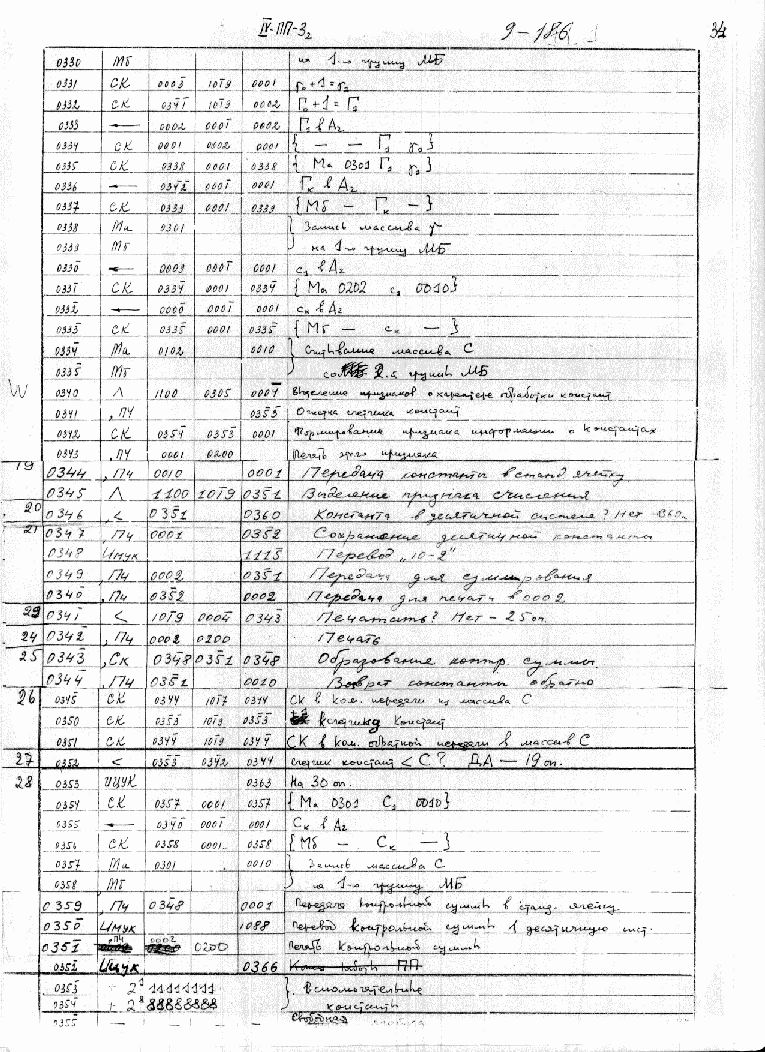 IV-ПП-3₂ 9-186 34
0330 Мб на 1-ю группу МБ
0331 СК 0003̄ 101̄9 0001 γ₀+1=γ₂
0332 СК 034̄1̄ 101̄9 0002 Г₀+1=Г₁
0333 ← 0002 0001̄ 0002 Г₁ в А₂
0334 СК 0001 0102 0001 { — — Г₁ γ₀}
0335 СК 0338 0001 0338 { Ма 0301 Г₁ γ₀}
0336 ← 034̄2̄ 0001̄ 0001 Гк в А₂
0337 СК 0339 0001 0339 {Мб — Гк —}
0338 Ма 0301 Запись массива γ
0339 Мб на 1-ю группу МБ
033̄0̄ ← 0009 0001̄ 0001 с₁ в А₂
033̄1̄ СК 0334̄ 0001 0334̄ { Ма 0202 с₁ 0010}
033̄2̄ ← 0000̄ 0001̄ 0001 ск в А₂
0333̄ СК 0335̄ 0001 0335̄ {Мб — ск —}
0334̄ Ма 0102 0010 Считывание массива С
0335̄ Мб со 2.5 группы МБ
W 0340 Л 1100 0305 0004̄ Выделение признаков о характере обработки констант
0341 , ПЧ 0353̄ Очистка счетчика констант
0342 СК 0354̄ 0353̄ 0001 Формирование признака информации о константах
0343 , ПЧ 0001 0200 Печать этого признака
19 0344 , Пч 0010 0001 Передача константы в станд. ячейку
0345 Л 1100 101̄9 03̄51 Выделение признака счисления
20 0346 , < 03̄51 0360 Константа в десятичной системе? Нет -
21 0347 , Пч 0001 03̄52 Сохранение десятичной константы
0348 Цмук 1113̄ Перевод „10-2"
0349 , Пч 0002 03̄51 Передача для суммирования
034̄0̄ , Пч 03̄52 0002 Передача для печати в 0002
034̄1̄ < 101̄9 0004̄ 0343̄ Печатать? Нет - 25 оп.
24 0342̄ , Пч 0002 0200 Печать
25 0343̄ , Ск 03̄48 03̄51 03̄48 Образование контр. суммы
0344̄ , Пч 03̄51 0010 Возврат константы обратно
26 0345̄ СК 0344 101̄7 0344 СК в ком. передачи из массива С
0350 СК 0353̄ 101̄9 0353̄ в счетчик констант
0351 СК 0344̄ 101̄9 0344̄ СК в ком. обратной передачи в массив С
27 0352 < 0353̄ 0342 0344 счетчик констант < С? ДА — 19 оп.
28 0353 ЦЦУК 0363 На 30 оп.
0354 СК 0357 0001 0357 { Ма 0301 С₁ 0010}
0355 ← 034̄0̄ 0001̄ 0001 Ск в А₂
0356 СК 0358 0001 0358 {Мб — Ск —}
0357 Ма 0301 0010 Запись массива С
0358 Мб на 1-ю группу МБ
0359 , Пч 03̄48 0001 Передача контрольной суммы в станд. ячейку
035̄0̄ Цмук 1088 Перевод контрольной суммы в десятичную сист.
035̄1̄ , ПЧ 0002 0200 Печать контрольной суммы
035̄2̄ Цмук 0366 Конец работы ПП
0353̄ + 2⁸ 11111111 Вспомогательные
0354̄ + 2⁸ 88888888 константы
0355̄ — Свободная